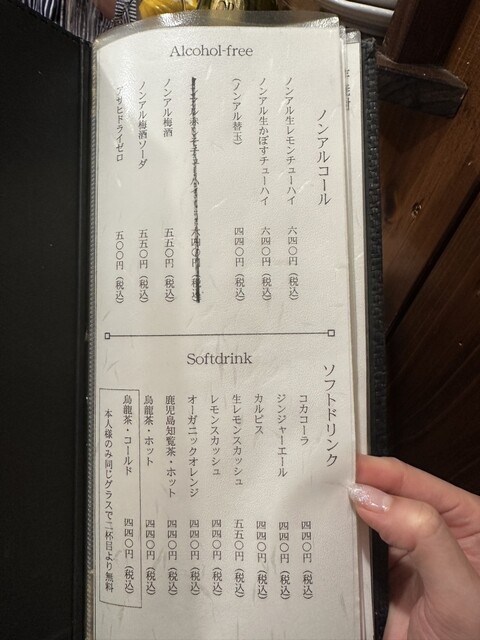 Alcohol-free
ノンアルコール
ノンアル生レモンチューハイ 六四〇円（税込）
ノンアル生かぼすチューハイ 六四〇円（税込）
（ノンアル替玉） 四四〇円（税込）
ノンアル梅酒 五五〇円（税込）
ノンアル梅酒ソーダ 五五〇円（税込）
アサヒドライゼロ 五〇〇円（税込）
Softdrink
ソフトドリンク
コカコーラ 四四〇円（税込）
ジンジャーエール 四四〇円（税込）
カルピス 四四〇円（税込）
生レモンスカッシュ 五五〇円（税込）
レモンスカッシュ 四四〇円（税込）
オーガニックオレンジ 四四〇円（税込）
鹿児島知覧茶・ホット 四四〇円（税込）
烏龍茶・ホット 四四〇円（税込）
烏龍茶・コールド 四四〇円（税込）
本人様のみ同じグラスで二杯目より無料